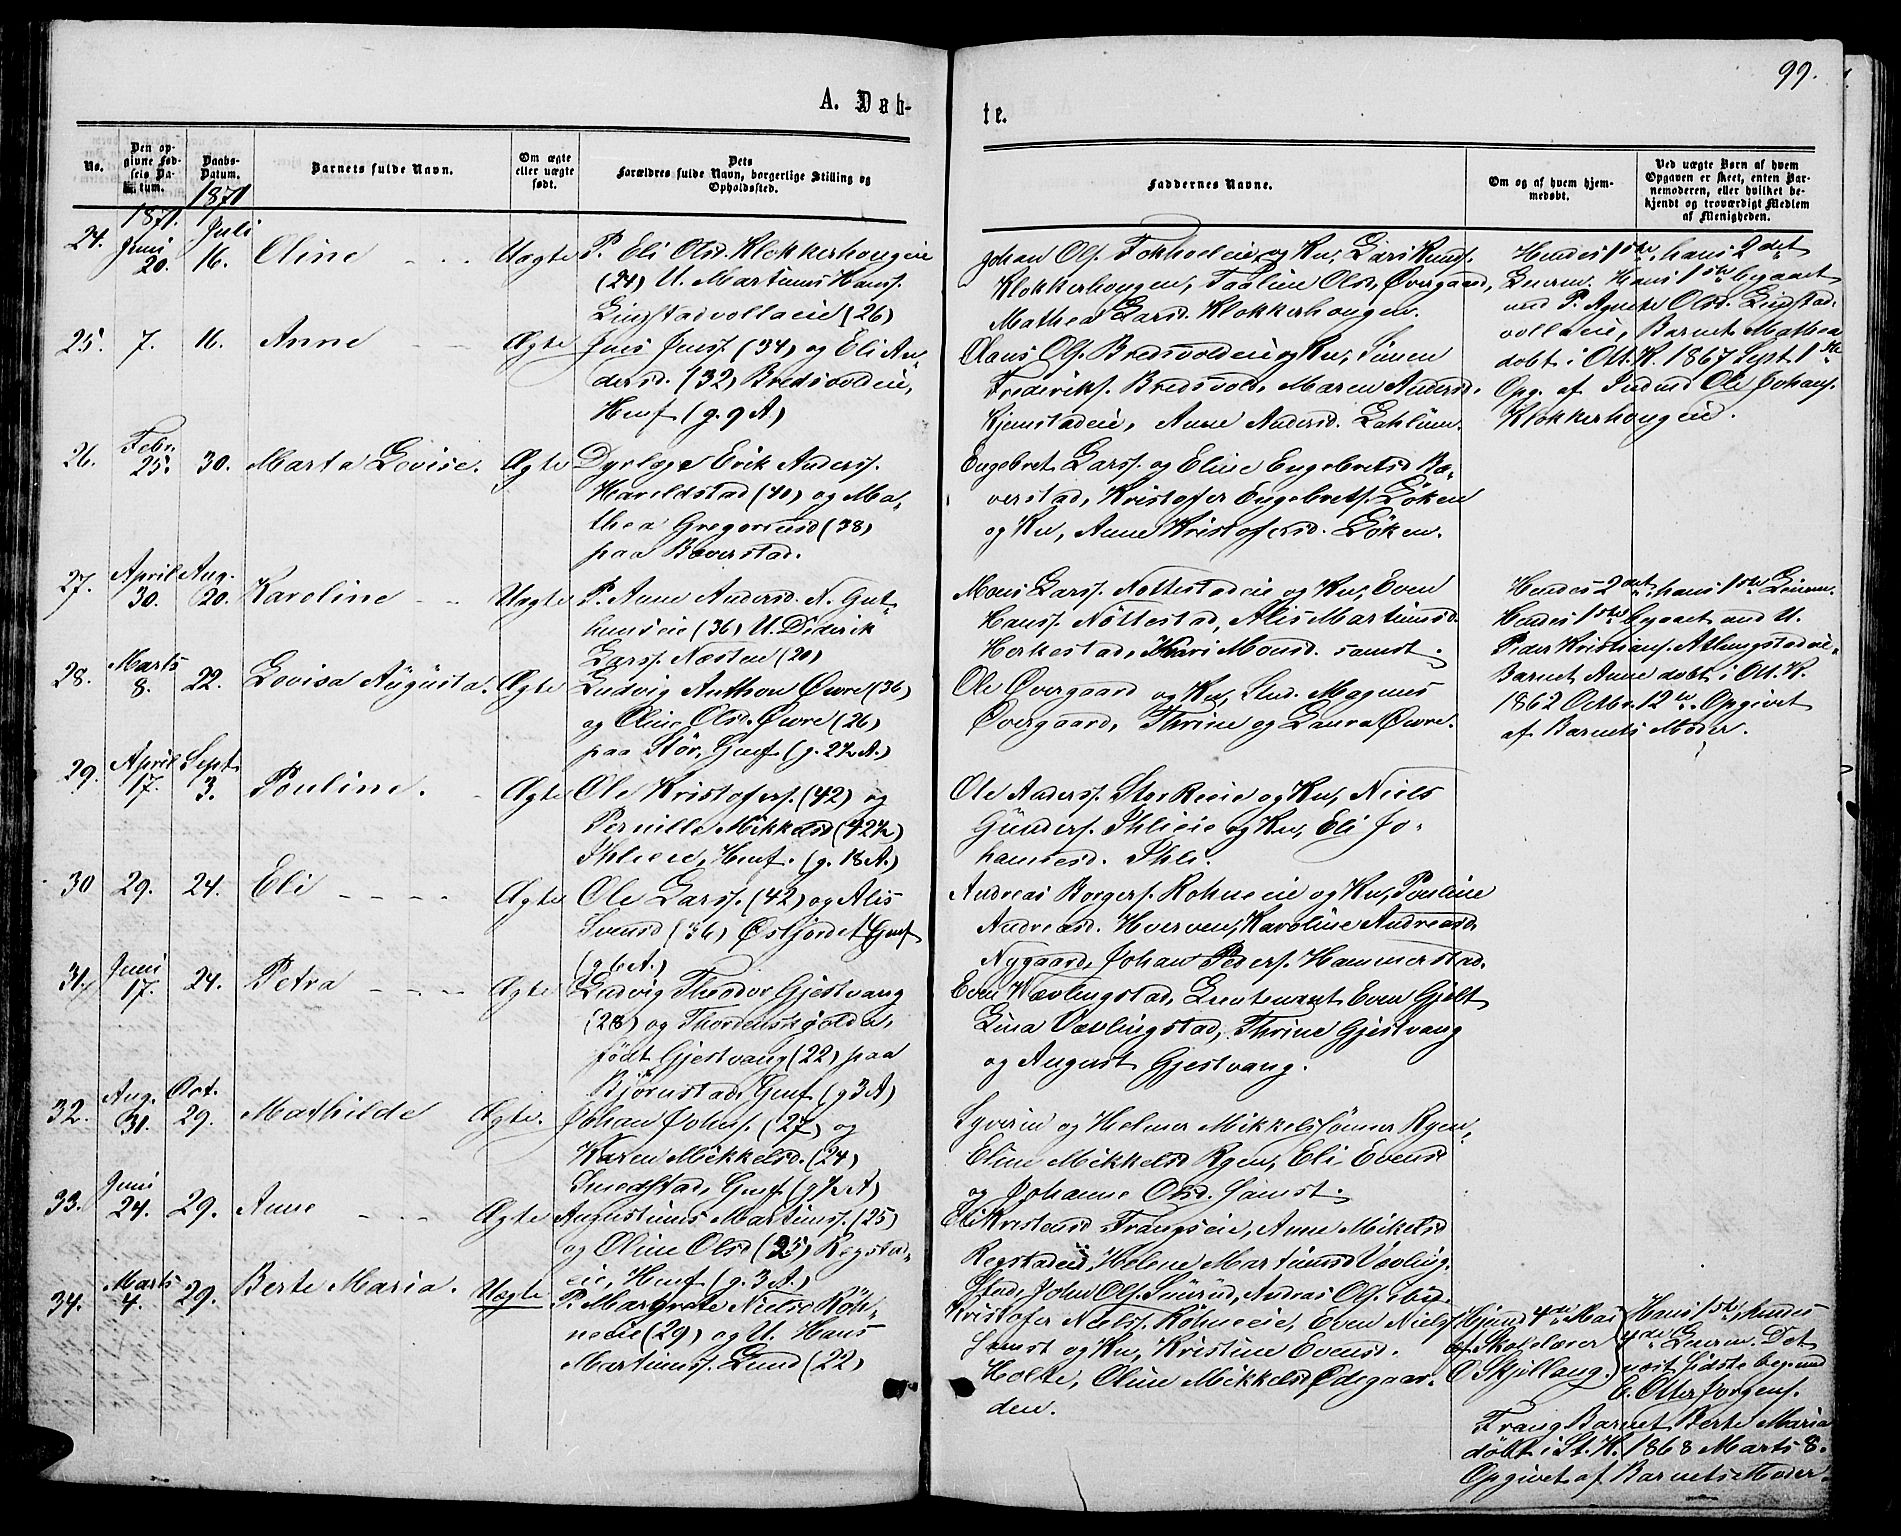 99.
A. Døb-
te.
No.
Den op-
givne Fød-
sels Da-
tum.
Daabs-
Datum.
Barnets fulde Navn.
Om ægte
eller uægte
født.
Dets
Forældres fulde Navn, borgerlige Stilling og
Opholdssted.
Faddernes Navne.
Om og af hvem hjem-
medøbt.
Ved uægte Børn af hvem
Opgaven er skeet, enten Bar-
nemoderen, eller hvilket be-
kjendt og troværdigt Medlem
af Menigheden.
1871. 1871
24. Juni 20. Juli 16. Oline Uægte
P. Eli Olsd. Klokkerhougeie
(24) U. Martinus Hanss.
Lingstadvollaeie (26)
Johan Ols. Fokholeie og Kn, Lars Knuds.
Klokkerhougen, Paaline Olsd. Øvergaard,
Mathea Larsd. Klokkerhougen.
Hendes 1ste, hans 2det
Leierm. Hans 1ste begaaet
med P. Agnete Olsd. Lingstad-
vollaeie, Barnet Mathea
døbt i Ott. K. 1867 Sept. 1ste
Opg. af Ole Johans.
Klokkerhougeie.
25. 7. 16. Anne Ægte
Jens Jenss. (34) og Eli An-
dersd. (32) Bredsvoldeie,
Hmf (g. 9 A)
Olaus Ols. Bredsvoldeie og Kn, Simen
Frederiks. Bredsvold, Maren Andersd.
Kjemstadeie, Anne Andersd. Dahlum.
26. Febr. 25. 30. Marta Lovise. Ægte
Dyrlæge Erik Anderss.
Haroldstad (40) og Ma-
thea Gregoriusd (38)
paa Bæverstad.
Engebret Larss. og Eline Engebretsd Bæ-
verstad, Kristofer Engebrets. Løken
og Kn, Anne Kristofersd. Løken.
27. April 30. Aug. 20. Karoline Uægte
P. Anne Andersd. N. Gut-
humseie (36) U. Diderik
Larss. Næsten (20)
Mons Larss. Nøttestadeie og Kn, Even
Hanss. Nøttestad, Alis Martinusd.
Herkestad, Kari Monsd. samst.
Hendes 2det, hans 1ste Leierm.
Hendes 1ste begaaet med U.
Peder Kristians. Atlungstadeie.
Barnet Anne døbt i Ott. K.
1862 Octbr. 12te. Opgivet
af Barnets Moder.
28. Marts 8. 22. Lovisa Augusta. Ægte
Ludvig Anthon Øvre (36)
og Oline Olsd. Øvre (26)
paa Stör, Gmf (g. 2½ A.)
Ole Övergaard og Kn, Stud. Magnus
Övergaard, Thrine og Laura Övre.
29. April 17. Sept. 3. Pouline. Ægte
Ole Kristofers. (42) og
Pernille Mikkelsd (42½)
Ihlieie, Hmf. (g. 18 A.)
Ole Anderss. StorReeie og Kn, Niels
Gunders. Ihlieie og Kn, Eli Jo-
hannesd. Ihli.
30 29. 24. Eli Ægte
Ole Larss. (42) og Alis
Svensd (36) Østjordet Gmf
(g. 6 A.)
Andreas Borgers. Rohneeie og Kn, Pouline
Andreasd. Hverven, Karoline Andreasd.
Nygaard, Johan Peders. Hammerstad.
31. Juni 17. 24. Petra Ægte
Ludvig Theodor Gjestvang
(28) og Thordenskjolda,
født Gjestvang (22) paa
Bjørnstad, Gmf (g 3 A)
Even Vævlingstad, Lieutenant Even Gjelt
Lina Vævlingstad, Thrine Gjestvang
og August Gjestvang.
32. Aug. 31. Oct. 29. Mathilde Ægte.
Johan Johns. (27) og
Karen Mikkelsd. (24)
Smedstad, Gmf (g ½ A)
Syverin og Helmer Mikkelssønner Ryen,
Eline Mikkelsd Ryen, Eli Evensd
og Johanne Olsd. samst.
33. Juni 24. 29. Anne Ægte
Augustinus Martinuss. (25)
og Oline Olsd (25) Regstad-
eie, Hmf (g. 3 A.)
Eli Kristensd Frangseie, Anne Mikelsd
Regstadeie, Helene Martinusd Vævling-
stad, John Ols. Sünrüd, Andras Ols. ibid.
34. Marts 4. 29. Berte Maria. Uægte
P. Margrete Nielsd Röh-
neeie (29) og U. Hans
Martinuss. Lund (22)
Kristofer Nielss. Röhneeie, Even Niels
samst og Kn, Kristine Evensd.
Holte, Oline Mikkelsd Ødegaar-
den.
Hjemd 4de Mai
af Skolelærer
O Skjellaug.
Hans 1ste, hendes
4de Leierm. Det
næst sidste beg. med
E. Otter Jørgens.
Frang Barnet Berte Maria
døbt i St. K. 1868 Marts 8.
Opgivet af Barnets Moder.